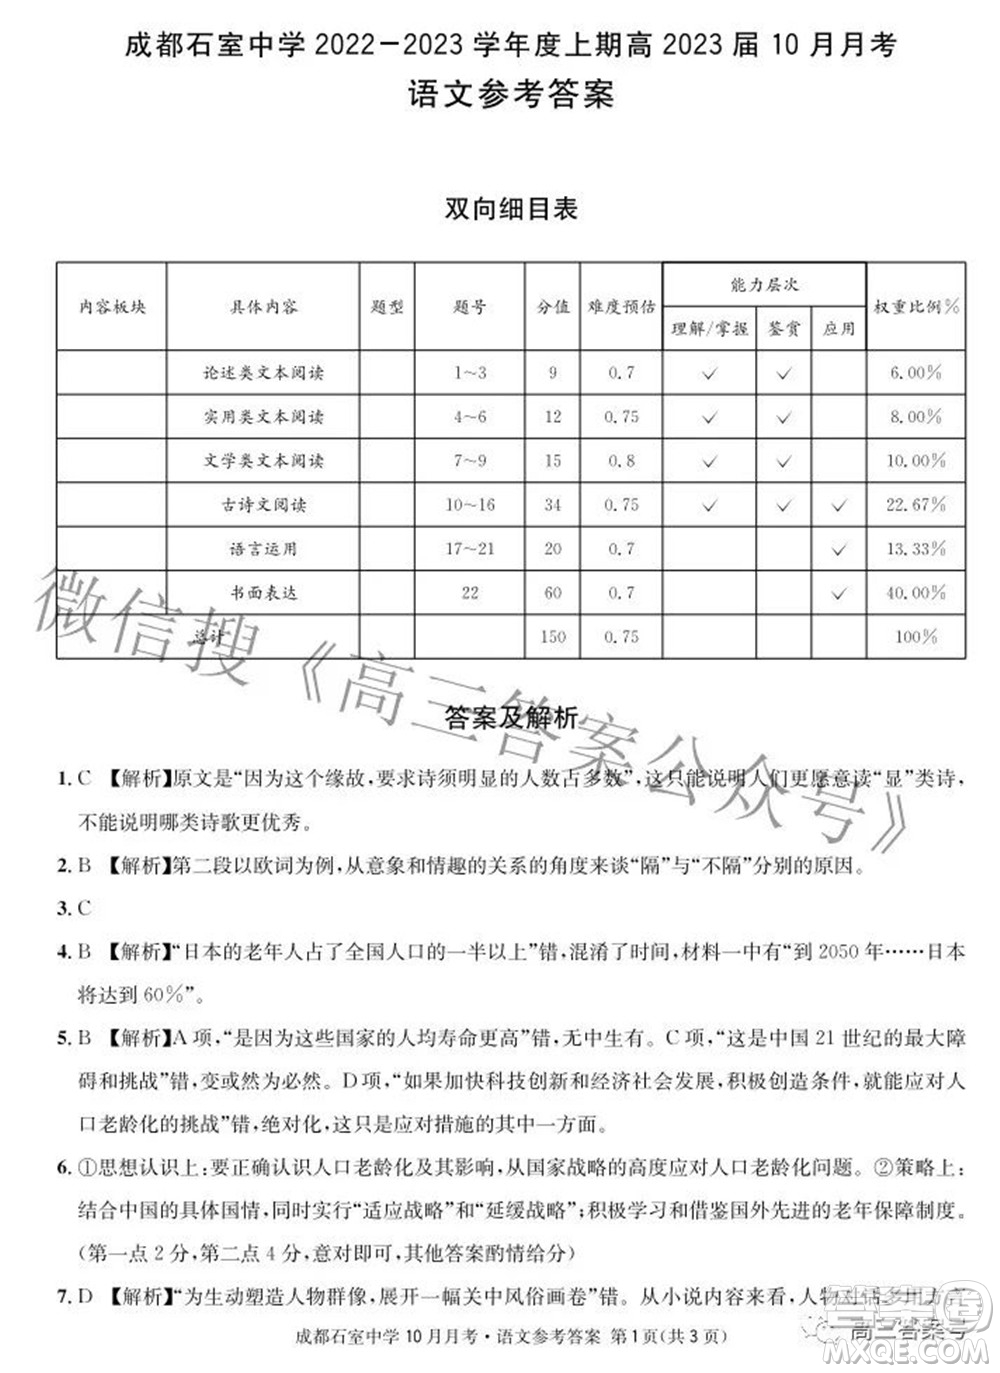 成都石室中学 2022－2023 学年度上期高 2023 届 10 月月考
语文参考答案
双向细目表
内容板块 具体内容 题型 题号 分值 难度预估 能力层次 权重比例%
理解/掌握 鉴赏 应用
论述类文本阅读 1～3 9 0.7 ✓ ✓ 6.00%
实用类文本阅读 4～6 12 0.75 ✓ ✓ 8.00%
文学类文本阅读 7～9 15 0.8 ✓ ✓ 10.00%
古诗文阅读 10～16 34 0.75 ✓ ✓ ✓ 22.67%
语言运用 17～21 20 0.7 ✓ 13.33%
书面表达 22 60 0.7 ✓ 40.00%
总计 150 0.75 100%
微信搜《高三答案公众号》
答案及解析
1. C 【解析】原文是“因为这个缘故，要求诗须明显的人数占多数”，这只能说明人们更愿意读“显”类诗，
不能说明哪类诗歌更优秀。
2. B 【解析】第二段以欧词为例，从意象和情趣的关系的角度来谈“隔”与“不隔”分别的原因。
3. C
4. B 【解析】“日本的老年人占了全国人口的一半以上”错，混淆了时间，材料一中有“到 2050 年……日本
将达到 60%”。
5. B 【解析】A 项，“是因为这些国家的人均寿命更高”错，无中生有。C 项，“这是中国 21 世纪的最大障
碍和挑战”错，变或然为必然。D 项，“如果加快科技创新和经济社会发展，积极创造条件，就能应对人
口老龄化的挑战”错，绝对化，这只是应对措施的其中一方面。
6. ①思想认识上：要正确认识人口老龄化及其影响，从国家战略的高度应对人口老龄化问题。②策略上：
结合中国的具体国情，同时实行“适应战略”和“延缓战略”；积极学习和借鉴国外先进的老年保障制度。
（第一点 2 分，第二点 4 分，意对即可，其他答案酌情给分）
7. D 【解析】“为生动塑造人物群像，展开一幅关中风俗画卷”错误。从小说发展来看，人物对话多用方言
成都石室中学 10 月月考·语文参考答案 第 1 页（共 3 页）
高三答案号